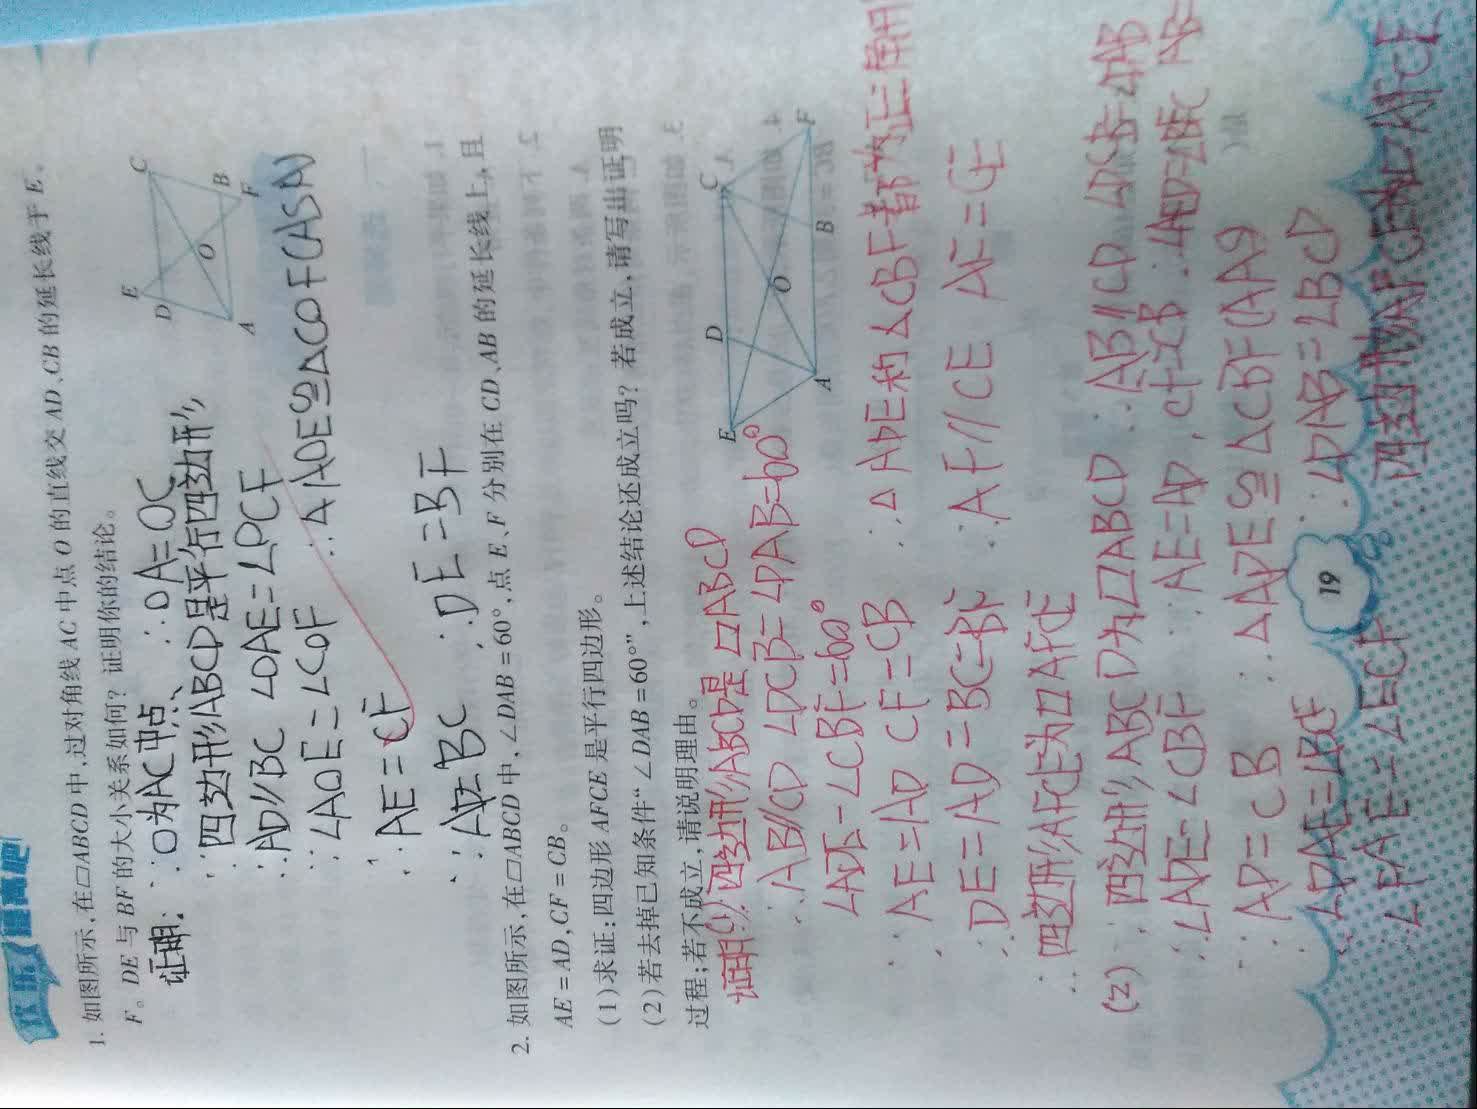 1. 如图所示,在□ABCD中,过对角线AC中点O的直线交AD、CB的延长线于E、
F。DE与BF的大小关系如何？证明你的结论。
证明：∵O为AC中点 ∴OA=OC
∵四边形ABCD是平行四边形
∴AD//BC ∠OAE=∠OCF
∵∠AOE=∠COF ∴△AOE≌△COF(ASA)
∴AE=CF
∵AD=BC ∴DE=BF
E
D
C
O
B
A
F
2. 如图所示,在□ABCD中,∠DAB=60°,点E、F分别在CD、AB的延长线上,且
AE=AD,CF=CB。
(1)求证:四边形AFCE是平行四边形。
(2)若去掉已知条件“∠DAB=60°”,上述结论还成立吗？若成立,请写出证明
过程;若不成立,请说明理由。
E
D
C
O
A
B
F
证明:(1)∵四边形ABCD是□ABCD
∴AB//CD ∠DCB=∠DAB=60°
∠ADE=∠CBF=60°
∵AE=AD CF=CB ∴△ADE和△CBF都为正三角形
∴DE=AD=BC=BF ∴AF//CE AF=CE
∴四边形AFCE为□AFCE
(2) ∵四边形ABCD为□ABCD ∴AB//CD
∴∠ADE=∠CBF ∵AE=AD,CF=CB
∴AD=CB ∴△ADE≌△CBF(AAS)
∴∠DAE=∠BCF ∵∠DAB=∠BCD
∴∠FAE=∠ECF 四边形AFCE为□AFCE
19